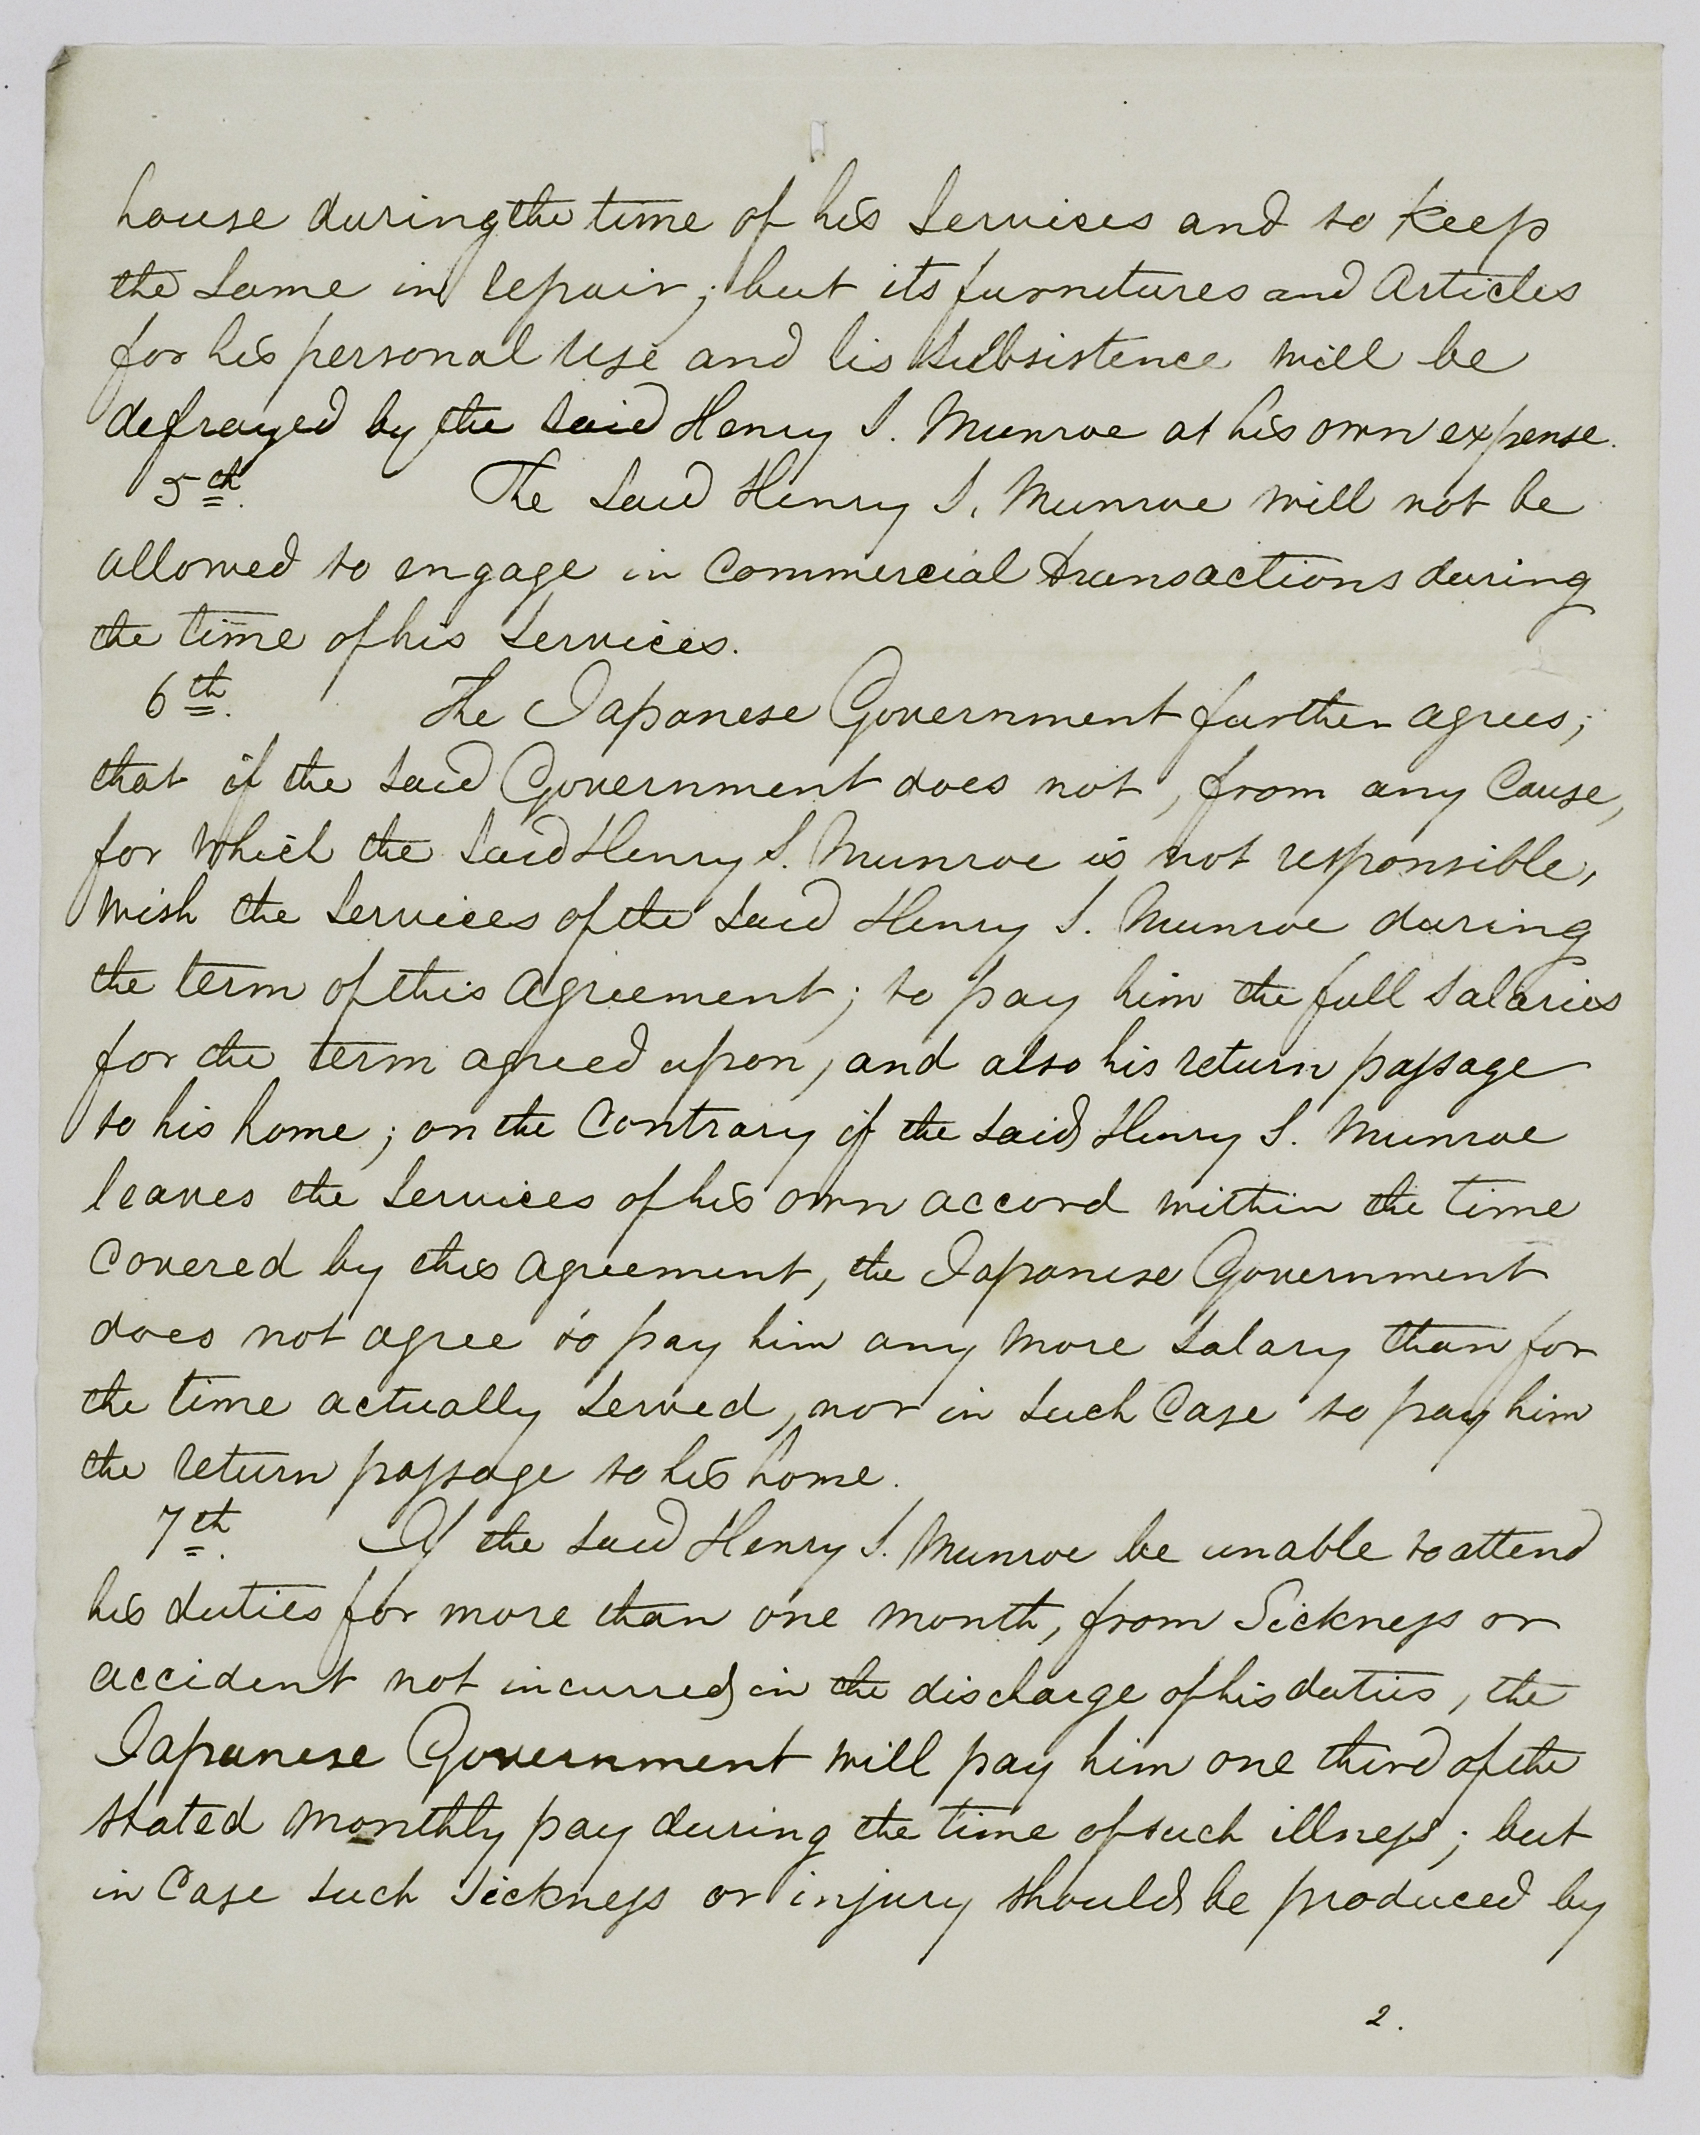 house during the time of his Services and to keep
the same in repair; but its furnitures and Articles
for his personal use and his Subsistence will be
defrayed by the said Henry S. Munroe at his own expense.
5th. The said Henry S. Munroe will not be
allowed to engage in Commercial transactions during
the time of his services.
6th. The Japanese Government further agrees;
that if the said Government does not, from any Cause,
for which the said Henry S. Munroe is not responsible,
wish the services of the said Henry S. Munroe during
the term of this Agreement; to pay him the full salaries
for the term agreed upon, and also his return passage
to his home; on the Contrary if the said Henry S. Munroe
leaves the services of his own accord within the time
Covered by this Agreement, the Japanese Government
does not agree to pay him any more salary than for
the time actually served, nor in such Case to pay him
the return passage to his home.
7th. If the said Henry S. Munroe be unable to attend
his duties for more than one month, from Sickness or
accident not incurred in the discharge of his duties, the
Japanese Government will pay him one third of the
stated monthly pay during the time of such illness; but
in Case such Sickness or injury should be produced by
2.